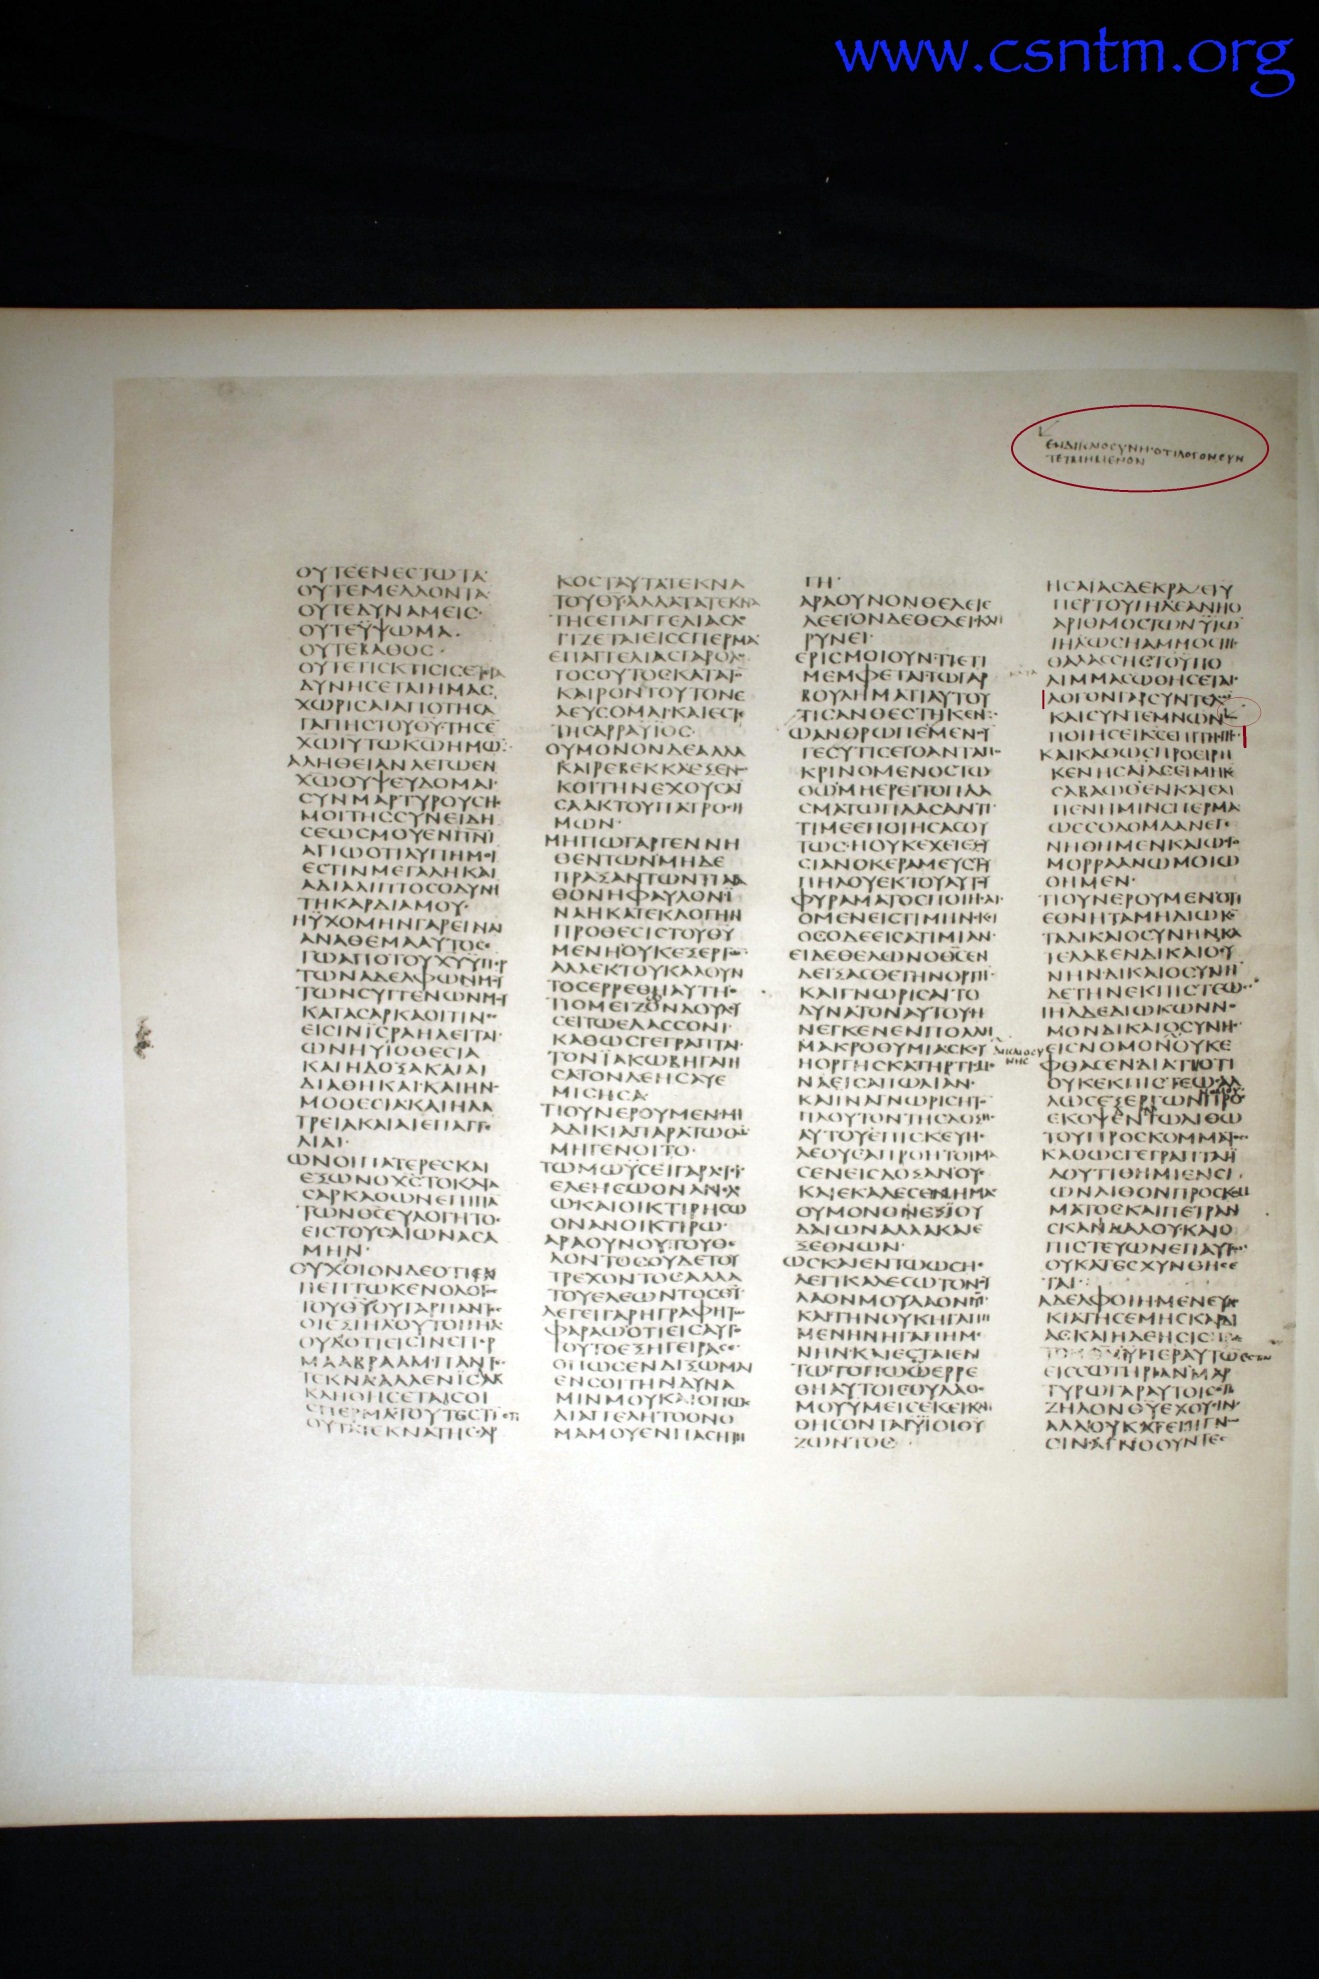 www.csntm.org
ΕΝΔΙΚΑΙΟCΥΝΗ·ΟΤΙΛΟΓΟΝCΥΝ
ΤΕΤΜΗΜΕΝΟΝ
ΟΥΤΕΕΝΕCΤΩΤΑ·
ΟΥΤΕΜΕΛΛΟΝΤΑ·
ΟΥΤΕΔΥΝΑΜΕΙC·
ΟΥΤΕΥΨΩΜΑ·
ΟΥΤΕΒΑΘΟC·
ΟΥΤΕΤΙCΚΤΙCΙC
ΔΥΝΗCΕΤΑΙΗΜΑC
ΧΩΡΙCΑΙΑΠΟΤΗCΑ
ΓΑΠΗCΤΟΥΘΥΤΗCΕ
ΧΩΙΥΤΩΚΩΗΜΩ
ΑΛΗΘΕΙΑΝΛΕΓΩΕΝ
ΧΩΟΥΨΕΥΔΟΜΑΙ·
CΥΝΜΑΡΤΥΡΟΥCΗ
ΜΟΙΤΗCCΥΝΕΙΔΗ
CΕΩCΜΟΥΕΝΠΝΙ
ΑΓΙΩΟΤΙΛΥΠΗΜΟΙ
ΕCΤΙΝΜΕΓΑΛΗΚΑΙ
ΑΔΙΑΛΙΠΤΟCΟΔΥΝΗ
ΤΗΚΑΡΔΙΑΜΟΥ·
ΗΥΧΟΜΗΝΓΑΡΕΙΝΑΙ
ΑΝΑΘΕΜΑΑΥΤΟC
ΕΓΩΑΠΟΤΟΥΧΥΥΠΕΡ
ΤΩΝΑΔΕΛΦΩΝΜΟΥ
ΤΩΝCΥΓΓΕΝΩΝΜΟΥ
ΚΑΤΑCΑΡΚΑΟΙΤΙΝΕC
ΕΙCΙΝΙCΡΑΗΛΕΙΤΑΙ·
ΩΝΗΥΙΟΘΕCΙΑ
ΚΑΙΗΔΟΞΑΚΑΙΑΙ
ΔΙΑΘΗΚΑΙ·ΚΑΙΗΝ
ΜΟΘΕCΙΑΚΑΙΗΛΑ
ΤΡΕΙΑΚΑΙΑΙΕΠΑΓΓΕ
ΛΙΑΙ·
ΩΝΟΙΠΑΤΕΡΕCΚΑΙ
ΕΞΩΝΟΧCΤΟΚΑΤΑ
CΑΡΚΑΟΩΝΕΠΙΠΑ
ΤΩΝΘCΕΥΛΟΓΗΤΟC
ΕΙCΤΟΥCΑΙΩΝΑCΑ
ΜΗΝ·
ΟΥΧΟΙΟΝΔΕΟΤΙΕΚ
ΠΕΠΤΩΚΕΝΟΛΟΓΟC
ΤΟΥΘΥΟΥΓΑΡΠΑΝΤΕC
ΟΙΕΞΙΗΛΟΥΤΟΙΙΗΛ
ΟΥΧΟΤΙΕΙCΙΝCΠΕΡ
ΜΑΑΒΡΑΑΜΠΑΝΤΕC
ΤΕΚΝΑ·ΑΛΛΕΝΙCΑΚ
ΚΛΗΘΗCΕΤΑΙCΟΙ
CΠΕΡΜΑΤΟΥΤΕCΤΙΝΟΤΙ
ΟΥΤΑΤΕΚΝΑΤΗCCΑΡ
ΚΟCΤΑΥΤΑΤΕΚΝΑ
ΤΟΥΘΥ·ΑΛΛΑΤΑΤΕΚΝΑ
ΤΗCΕΠΑΓΓΕΛΙΑCΛΟ
ΓΙΖΕΤΑΙΕΙCCΠΕΡΜΑ·
ΕΠΑΓΓΕΛΙΑCΓΑΡΟΛΟ
ΓΟCΟΥΤΟCΚΑΤΑΤΟΝ
ΚΑΙΡΟΝΤΟΥΤΟΝΕ
ΛΕΥCΟΜΑΙ·ΚΑΙΕCΤΑΙ
ΤΗCΑΡΡΑΥΙΟC·
ΟΥΜΟΝΟΝΔΕΑΛΛΑ
ΚΑΙΡΕΒΕΚΚΑΕΞΕΝΟC
ΚΟΙΤΗΝΕΧΟΥCΑΪ
CΑΑΚΤΟΥΠΑΤΡΟCΗ
ΜΩΝ·
ΜΗΠΩΓΑΡΓΕΝΝΗ
ΘΕΝΤΩΝΜΗΔΕ
ΠΡΑΞΑΝΤΩΝΤΙΑΓΑ
ΘΟΝΗΦΑΥΛΟΝΪ
ΝΑΗΚΑΤΕΚΛΟΓΗΝ
ΠΡΟΘΕCΙCΤΟΥΘΥ
ΜΕΝΗΟΥΚΕΞΕΡΓΩ
ΑΛΛΕΚΤΟΥΚΑΛΟΥΝ
ΤΟCΕΡΡΕΘΗΑΥΤΗ·
ΟΤΙΟΜΕΙΖΩΝΔΟΥΛΕΥ
CΕΙΤΩΕΛΑCCΟΝΙ·
ΚΑΘΩCΓΕΓΡΑΠΤΑΙ
ΤΟΝΪΑΚΩΒΗΓΑΠΗ
CΑΤΟΝΔΕΗCΑΥΕ
ΜΙCΗCΑ·
ΤΙΟΥΝΕΡΟΥΜΕΝΜΗ
ΑΔΙΚΙΑΠΑΡΑΤΩΘΩ
ΜΗΓΕΝΟΙΤΟ·
ΤΩΜΩΥCΕΙΓΑΡΛΕΓΕΙ
ΕΛΕΗCΩΟΝΑΝΕΛΕ
ΩΚΑΙΟΙΚΤΙΡΗCΩ
ΟΝΑΝΟΙΚΤΙΡΩ·
ΑΡΑΟΥΝΟΥΤΟΥΘΕ
ΛΟΝΤΟCΟΥΔΕΤΟΥ
ΤΡΕΧΟΝΤΟCΑΛΛΑ
ΤΟΥΕΛΕΩΝΤΟCΘΥ
ΛΕΓΕΙΓΑΡΗΓΡΑΦΗΤΩ
ΦΑΡΑΩΟΤΙΕΙCΑΥΤΟ
ΤΟΥΤΟΕΞΗΓΕΙΡΑCΕ·
ΟΠΩCΕΝΔΙΞΩΜΑΙ
ΕΝCΟΙΤΗΝΔΥΝΑ
ΜΙΝΜΟΥΚΑΙΟΠΩC
ΔΙΑΓΓΕΛΗΤΟΟΝΟ
ΜΑΜΟΥΕΝΠΑCΗΤΗ
ΓΗ·
ΑΡΑΟΥΝΟΝΘΕΛΕΙΕ
ΛΕΕΙΟΝΔΕΘΕΛΕΙCΚΛΗ
ΡΥΝΕΙ·
ΕΡΙCΜΟΙΟΥΝ·ΤΙΕΤΙ
ΜΕΜΦΕΤΑΙΤΩΓΑΡ
ΒΟΥΛΗΜΑΤΙΑΥΤΟΥ
ΤΙCΑΝΘΕCΤΗΚΕΝ·
ΩΑΝΘΡΩΠΕΜΕΝΟΥ
ΓΕCΥΤΙCΕΙΟΑΝΤΑΠΟ
ΚΡΙΝΟΜΕΝΟCΤΩ
ΘΩΜΗΕΡΕΙΤΟΠΛΑ
CΜΑΤΩΠΛΑCΑΝΤΙ·
ΤΙΜΕΕΠΟΙΗCΑCΟΥ
ΤΩC·ΗΟΥΚΕΧΕΙΕΞΟΥ
CΙΑΝΟΚΕΡΑΜΕΥCΤΟΥ
ΠΗΛΟΥΕΚΤΟΥΑΥΤΟΥ
ΦΥΡΑΜΑΤΟCΠΟΙΗCΑΙ
ΟΜΕΝΕΙCΤΙΜΗΝCΚΕΥ
ΟCΟΔΕΕΙCΑΤΙΜΙΑΝ·
ΕΙΔΕΘΕΛΩΝΟΘCΕΝ
ΔΕΙΞΑCΘΕΤΗΝΟΡΓΗ
ΚΑΙΓΝΩΡΙCΑΙΤΟ
ΔΥΝΑΤΟΝΑΥΤΟΥΗ
ΝΕΓΚΕΝΕΝΠΟΛΛΗ
ΜΑΚΡΟΘΥΜΙΑCΚΕΥΗ
ΟΡΓΗCΚΑΤΗΡΤΙCΜΕ
ΝΑΕΙCΑΠΩΛΙΑΝ·
ΚΑΙΙΝΑΓΝΩΡΙCΗΤΟΝ
ΠΛΟΥΤΟΝΤΗCΔΟΞΗC
ΑΥΤΟΥΕΠΙCΚΕΥΗ·
ΛΕΟΥCΑΠΡΟΗΤΟΙΜΑ
CΕΝΕΙCΔΟΞΑΝΟΥC
ΚΑΙΕΚΑΛΕCΕΝΗΜΑC
ΟΥΜΟΝΟΝΕΞΪΟΥ
ΔΑΙΩΝΑΛΛΑΚΑΙΕ
ΞΕΘΝΩΝ·
ΩCΚΑΙΕΝΤΩΩCΗΕ
ΛΕΓΙΚΑΛΕCΩΤΟΝΟΥ
ΛΑΟΝΜΟΥΛΑΟΝΜΟΥ
ΚΑΙΤΗΝΟΥΚΗΓΑΠΗ
ΜΕΝΗΝΗΓΑΠΗΜΕ
ΝΗΝ·ΚΑΙΕCΤΑΙΕΝ
ΤΩΤΟΠΩΩΕΡΡΕ
ΘΗΑΥΤΟΙCΟΥΛΑΟC
ΜΟΥΥΜΕΙCΕΚΕΙΚΛΗ
ΘΗCΟΝΤΑΙΥΙΟΙΘΥ
ΖΩΝΤΟC·
ΔΙΚΑΙΟCΥ
ΝΗC
ΗCΑΙΑCΔΕΚΡΑΖΕΙΥ
ΠΕΡΤΟΥΙΗΛΕΑΝΗΟ
ΑΡΙΘΜΟCΤΩΝΥΙΩ
ΙΗΛΩCΗΑΜΜΟCΤΗC
ΘΑΛΑCCΗCΤΟΥΠΟ
ΛΙΜΜΑCΩΘΗCΕΤΑΙ·
ΛΟΓΟΝΓΑΡCΥΝΤΕΛΩ
ΚΑΙCΥΝΤΕΜΝΩΝ
ΠΟΙΗCΕΙΚCΕΠΙΤΗCΓΗC
ΚΑΙΚΑΘΩCΠΡΟΕΙΡΗ
ΚΕΝΗCΑΪΑCΕΙΜΗΚC
CΑΒΑΩΘΕΝΚΑΤΕΛΙ
ΠΕΝΗΜΙΝCΠΕΡΜΑ
ΩCCΟΔΟΜΑΑΝΕΓΕ
ΝΗΘΗΜΕΝΚΑΙΩCΓΟ
ΜΟΡΡΑΑΝΩΜΟΙΩ
ΘΗΜΕΝ·
ΤΙΟΥΝΕΡΟΥΜΕΝΟΤΙ
ΕΘΝΗΤΑΜΗΔΙΩΚΟ
ΤΑΔΙΚΑΙΟCΥΝΗΝΚΑ
ΤΕΛΑΒΕΝΔΙΚΑΙΟCΥ
ΝΗΝ·ΔΙΚΑΙΟCΥΝΗ
ΔΕΤΗΝΕΚΠΙCΤΕΩC·
ΙΗΛΔΕΔΙΩΚΩΝΝΟ
ΜΟΝΔΙΚΑΙΟCΥΝΗC
ΕΙCΝΟΜΟΝΟΥΚΕ
ΦΘΑCΕΝΔΙΑΤΙΟΤΙ
ΟΥΚΕΚΠΙCΤΕΩCΑΛ
ΛΩCΕΞΕΡΓΩΝΠΡΟC
ΕΚΟΨΕΝΤΩΛΙΘΩ
ΤΟΥΠΡΟCΚΟΜΜΑΤΟC
ΚΑΘΩCΓΕΓΡΑΠΤΑΙΪ
ΔΟΥΤΙΘΗΜΙΕΝCΙ
ΩΝΛΙΘΟΝΠΡΟCΚΟΜ
ΜΑΤΟCΚΑΙΠΕΤΡΑΝ
CΚΑΝΔΑΛΟΥ·ΚΑΙΟ
ΠΙCΤΕΥΩΝΕΠΑΥΤΩ
ΟΥΚΑΤΕCΧΥΝΘΗCΕ
ΤΑΙ·
ΑΔΕΛΦΟΙΗΜΕΝΕΥΔΟ
ΚΙΑΤΗCΕΜΗCΚΑΡΔΙ
ΑCΚΑΙΗΔΕΗCΙC
ΥΠΕΡΑΥΤΩΕCΤΙΝ
ΕΙCCΩΤΗΡΙΑΝΜΑΡ
ΤΥΡΩΓΑΡΑΥΤΟΙCΟΤΙ
ΖΗΛΟΝΘΥΕΧΟΥCΙΝ·
ΑΛΛΟΥΚΑΤΕΠΙΓΝΩ
CΙΝ·ΑΓΝΟΟΥΝΤΕC